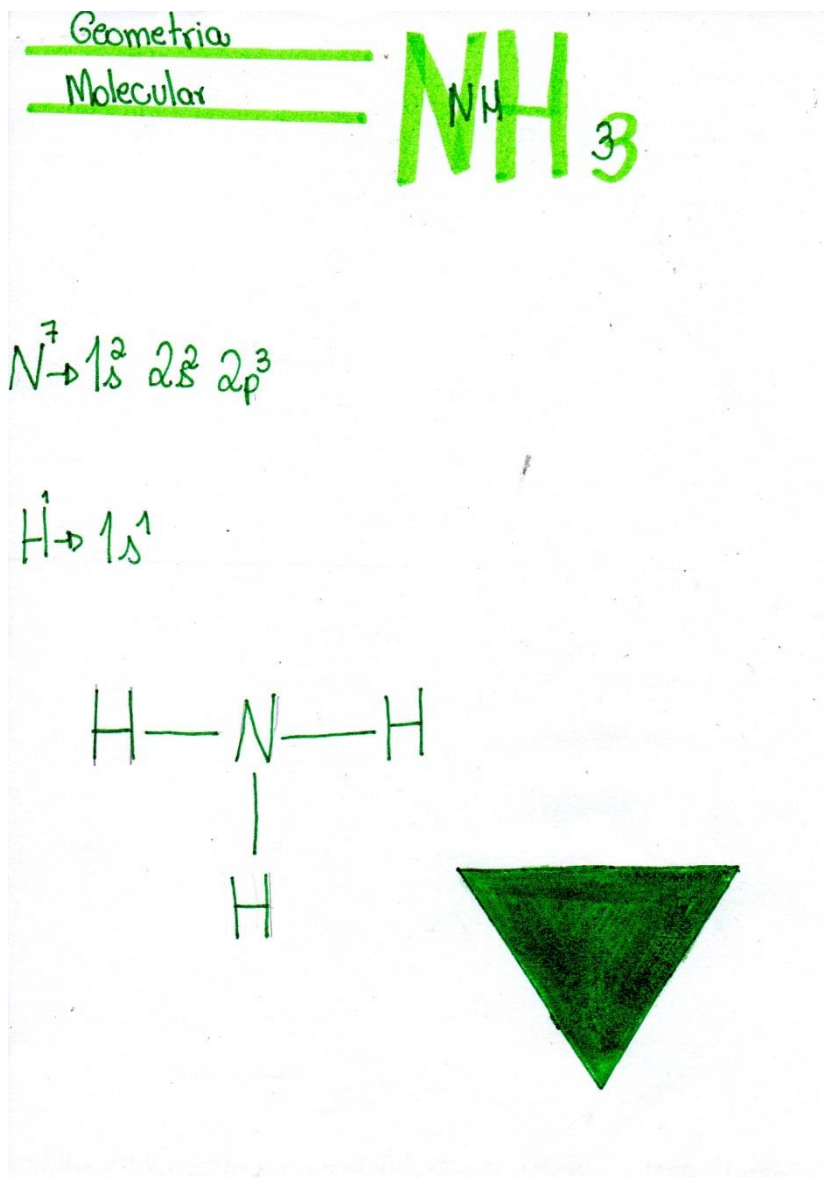 Geometria
Molecular
NH3
NH3
N⁷→1s² 2s² 2p³
H¹→1s¹
H—N—H
|
H